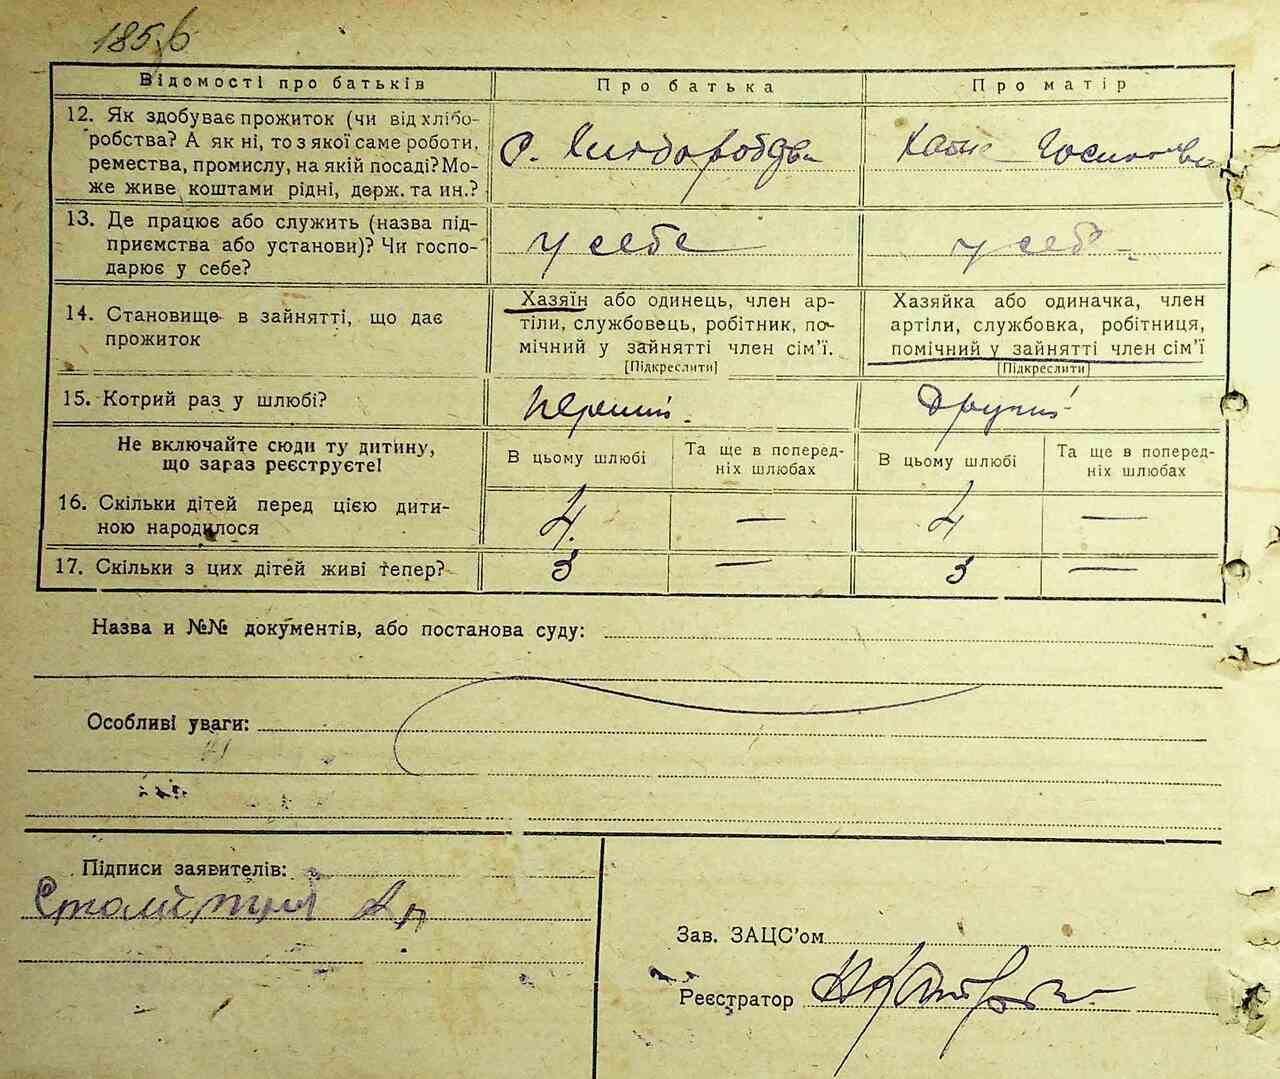 185 б
Відомості про батьків
Про батька
Про матір
12. Як здобуває прожиток (чи від хлібо-
робства? А як ні, то з якої саме роботи,
ремества, промислу, на якій посаді? Мо-
же живе коштами рідні, держ. та ин.?
С. Хлібороб
13. Де працює або служить (назва під-
приємства або установи)? Чи госпо-
дарює у себе?
у себе
у себе
14. Становище в зайнятті, що дає
прожиток
Хазяїн або одинець, член ар-
тіли, службовець, робітник, по-
мічний у зайнятті член сім'ї.
[Підкреслити]
Хазяйка або одиначка, член
артіли, службовка, робітниця,
помічний у зайнятті член сім'ї
[Підкреслити]
15. Котрий раз у шлюбі?
перший
Другий
Не включайте сюди ту дитину,
що зараз реєструєте!
В цьому шлюбі
Та ще в поперед-
ніх шлюбах
В цьому шлюбі
Та ще в поперед-
ніх шлюбах
16. Скільки дітей перед цією дити-
ною народилося
4
—
4
—
17. Скільки з цих дітей живі тепер?
3
—
3
—
Назва и №№ документів, або постанова суду:
Особливі уваги:
Підписи заявителів:
Зав. ЗАЦС'ом
Реєстратор